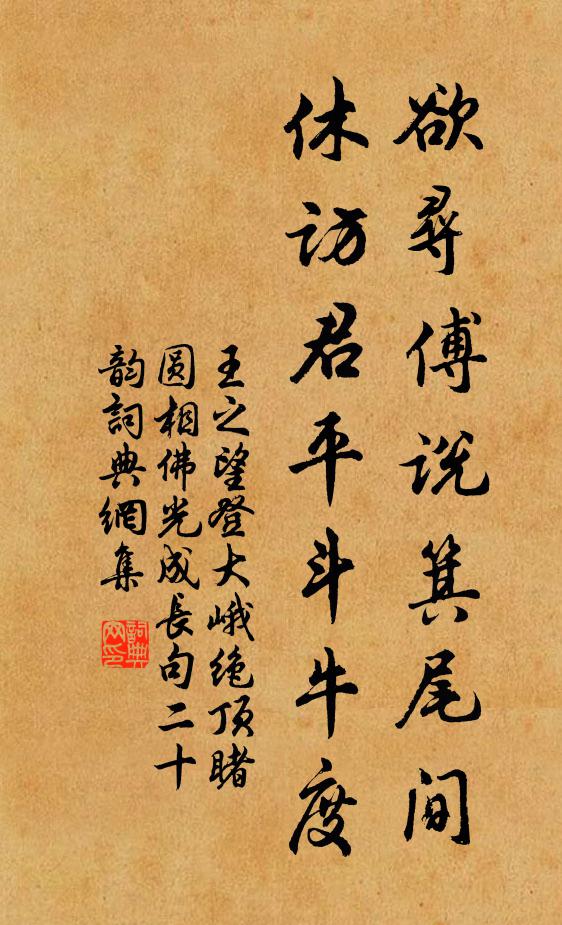 欲尋傅说箕尾间
休访君平斗牛度
王之望登大峨绝顶睹
圆相佛光成长句二十
韵詞典網集
詞典網印